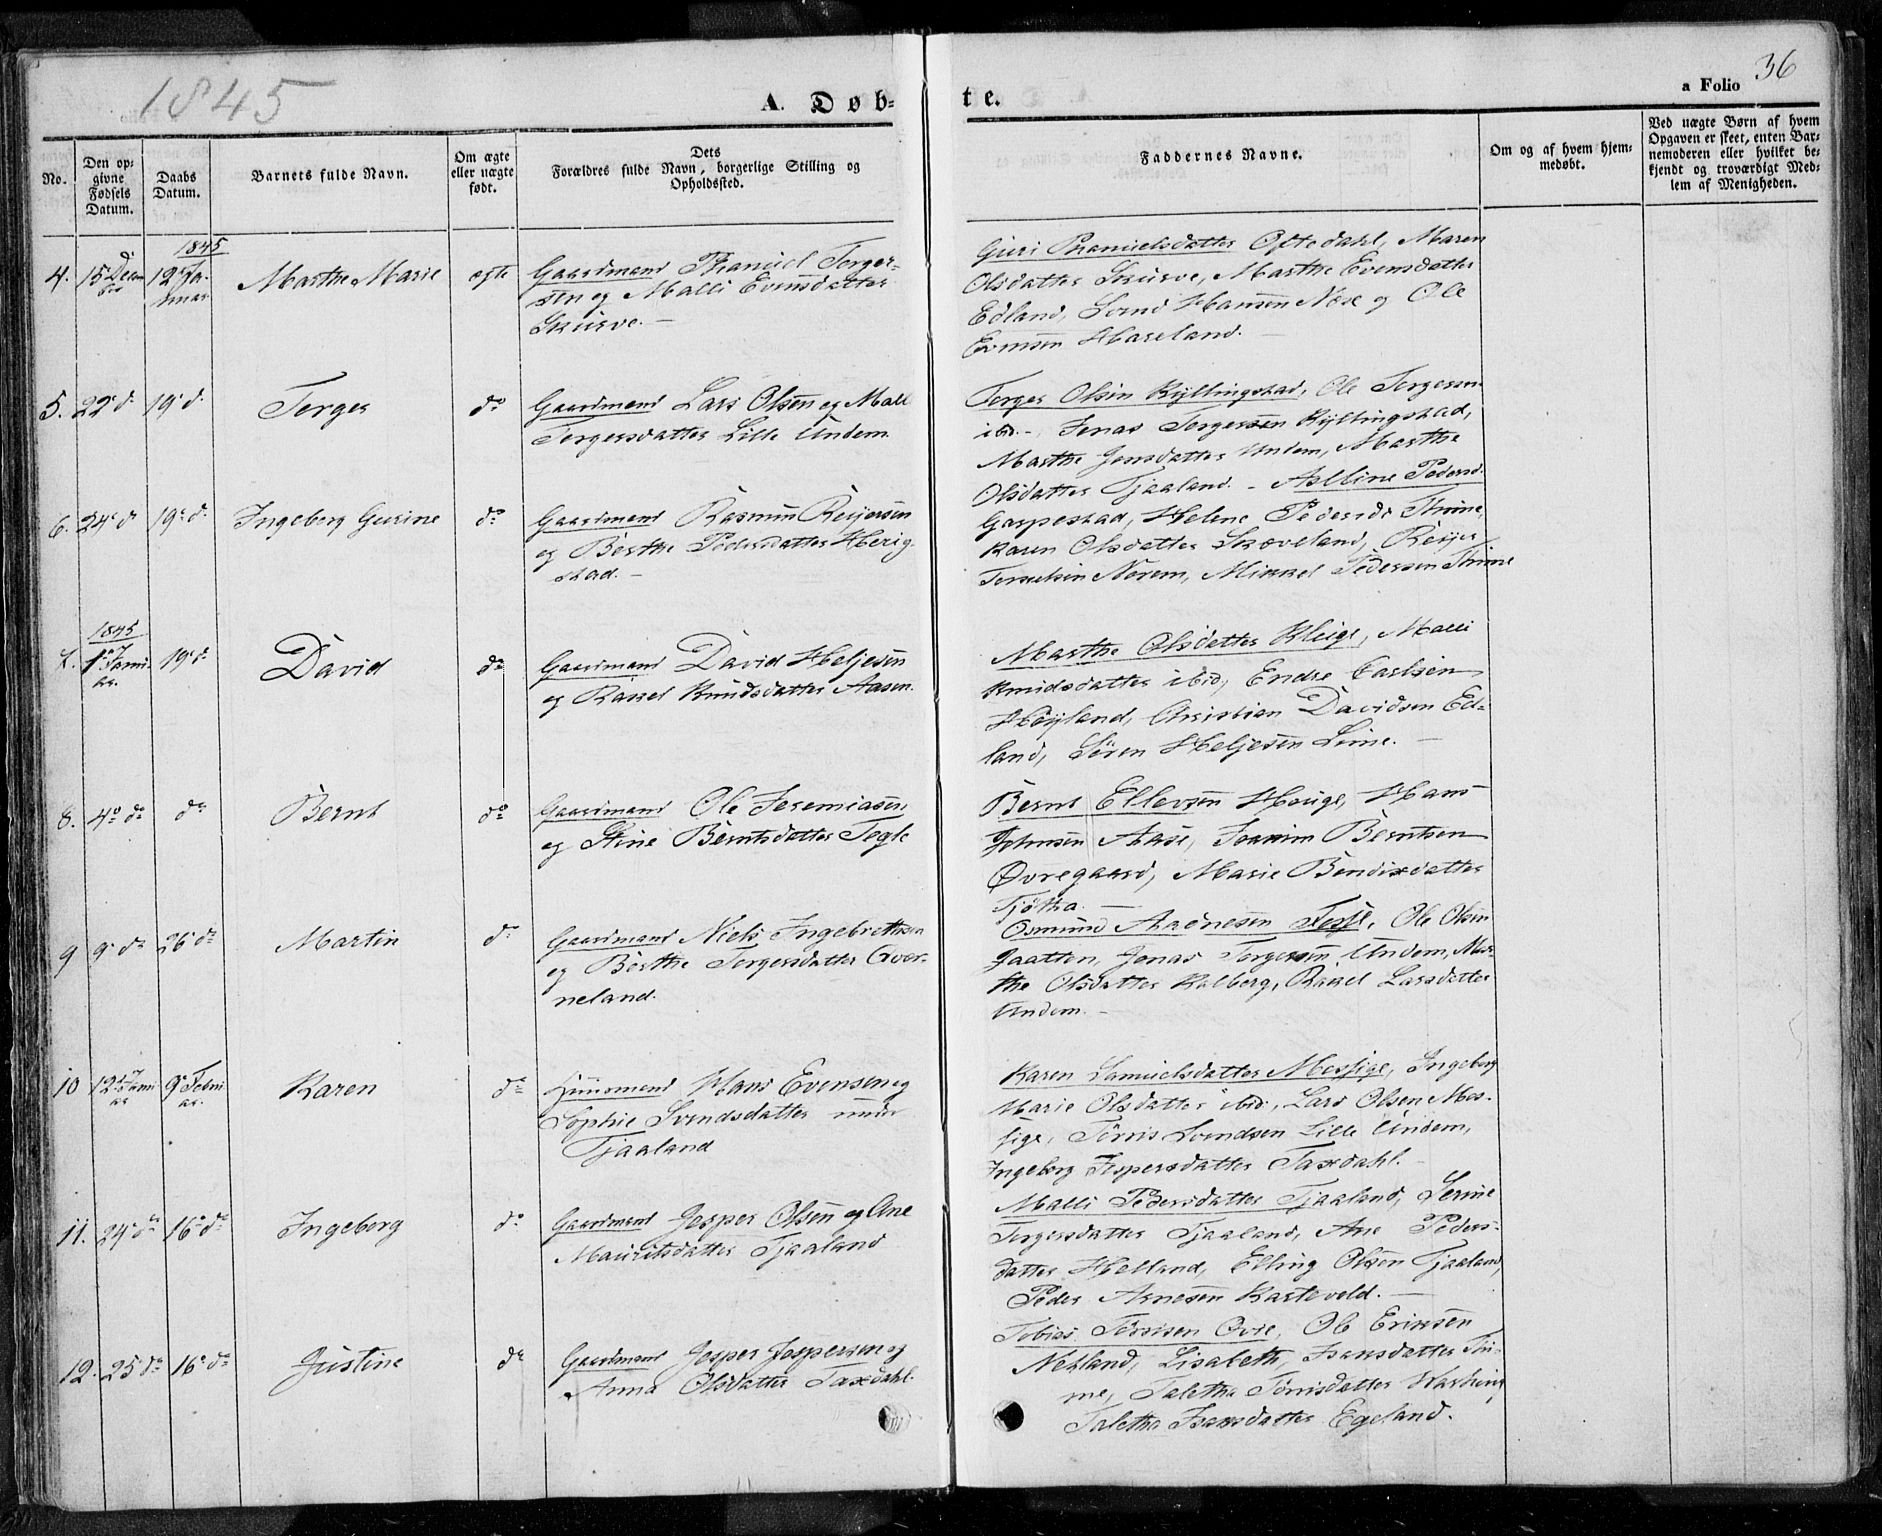 1845
A. Døb-
te.
a Folio 36
No.
Den op-
givne
Fødsels
Datum.
Daabs
Datum.
Barnets fulde Navn.
Om ægte
eller uægte
født.
Dets
Forældres fulde Navn, borgerlige Stilling og
Opholdssted.
Faddernes Navne.
Om og af hvem hjem-
medøbt.
Ved uægte Børn af hvem
Opgaven er skeet, enten Bar-
nemoderen eller hvilket be-
kjendt og troværdigt Med-
lem af Menigheden.
1845
4. 15de Decem
ber
12te Ja-
nuar
Marthe Marie
egte
Gaardmand Thanuel Torger-
sen og Malli Evensdatter
Skurve.—
Guri Thanuelsdatter Oftedahl, Maren
Olsdatter Skurve, Marthe Evensdatter
Edland, Svend Hansen Nese og Ole
Evensen Haveland.—
5. 22de d. 19de d.
Torger
do
Gaardmand Lars Olsen og Malli
Torgersdatter Lille Undem.
Torger Olsen Kyllingstad, Ole Torgersen
ibd.— Jonas Torgersen Kyllingstad,
Marthe Jonsdatter Undem, Marthe
Olsdatter Tjaaland.—
6. 24de d. 19de d.
Ingeborg Gurine
do
Gaardmand Rasmus Reijersen
og Berthe Pedersdatter Herig-
stad.—
Asseline Pedersd.
Gaspestad, Helene Pedersdr Thime,
Karen Olsdatter Skæveland, Reijer
Norem, Mikkel Pedersen Thime
1845
7. 1ste Janu-
ar.
19de d.
David
do
Gaardmand David Heljesen
og Rakel Knudsdatter Aasen.
Marthe Olsdatter Kleige, Malli
Knudsdatter ibid, Endre Carlsen
Høiland, Christian Davidsen Ed-
land, Søren Heljesen Lime.—
8. 4de do do
Bernt
do
Gaardmand Ole Jeremiasen
og Stine Berntsdatter Fogle
Bernt Ellevsen Houge, Hans
Johnsen Aase, Joakim Berntsen
Øvregaard, Marie Bendixdatter
Tjøtha.—
9 9de do 26de do
Martin
do
Gaardmand Niels Ingebrethsen
og Berthe Torgersdatter Qver-
neland.
Osmund Aadnesen Fosse, Ole Olsen
Gaatten, Jonas Torgersen Undem, Mar-
the Olsdatter Kalberg, Rakel Larsdatter
Undem.—
10 12te Janu
ar
9de Febru
ar.
Karen
do
Huusmand Hans Evensen og
Sophie Svendsdatter under
Tjaaland
Karen Samuelsdatter Mossige, Ingeborg
Marie Olsdatter ibid, Lars Olsen Mos-
sige, Tørris Svendsen Lille Undem,
Ingeborg Jespersdatter Taxdahl.—
11. 24de do 16de do
Ingeborg
do
Gaardmand Jesper Olsen og Ane
Mauritsdatter Tjaaland
Malli Pedersdatter Tjaaland, Serine
Torgersdatter Tjaaland, Ane Peders-
datter Helland, Elling Olsen Tjaaland,
Peder Arnesen Karteveld.—
12. 25de do 16de do
Justine
do
Gaardmand Jesper Jespersen og
Anna Olsdatter Taxdahl.
Tobias Tørrisen Ovre, Ole Eriksen
Netland, Lisabeth Isaksdatter Thi-
me, Talethe Tørrisdatter
Talethe Isaksdatter Egeland.